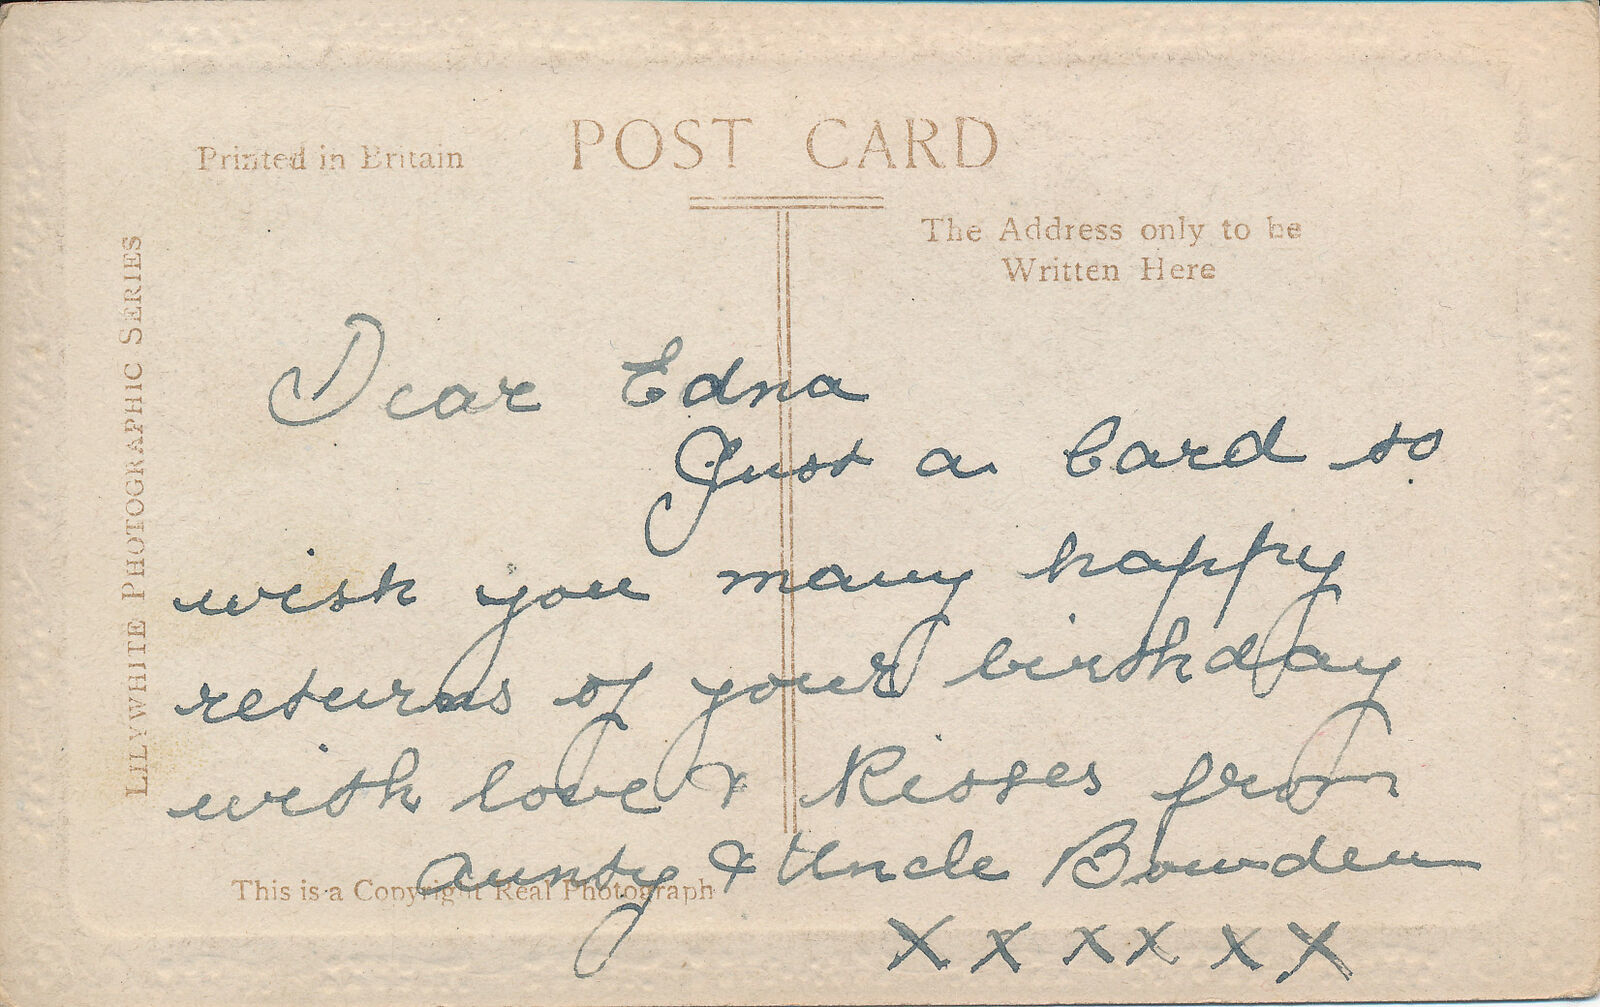 POST CARD
Printed in Britain
The Address only to be
Written Here
LILYWHITE PHOTOGRAPHIC SERIES
Dear Edna
Just a Card to
wish you many happy
returns of your birthday
with love & Kisses from
Aunty & Uncle Bowden
This is a Copyright Real Photograph
X X X X X X